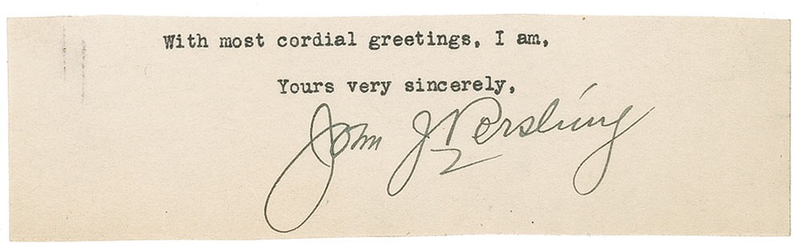 With most cordial greetings, I am,
Yours very sincerely,
John J Pershing